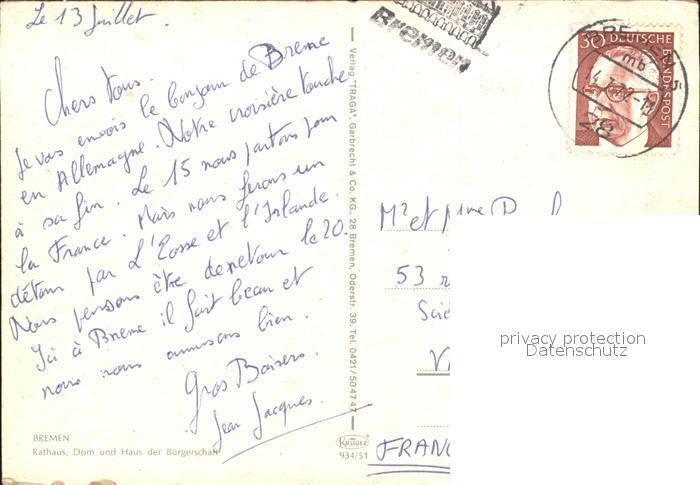 Le 13 Juillet.
Chers tous.
Je vous envois le bonjour de Breme
en Allemagne. Notre croisière touche
à sa fin. Le 15 nous partons pour
la France. Mais nous ferons un
détour par L'Ecosse et l'Irlande.
Nous pensons être de retour le 20.
Ici à Breme il fait beau et
nous nous amusons bien.
Gros Baisers.
Jean Jacques.
BREMEN
Rathaus, Dom und Haus der Bürgerschaft
Verlag "TRAGA", Garbrecht & Co. KG, 28 Bremen, Oderstr. 39, Tel. 0421/504747
KRÜGER
934/51
Bremen
30 DEUTSCHE BUNDESPOST
28
mb
Mr et Mme
53
FRANC
privacy protection
Datenschutz